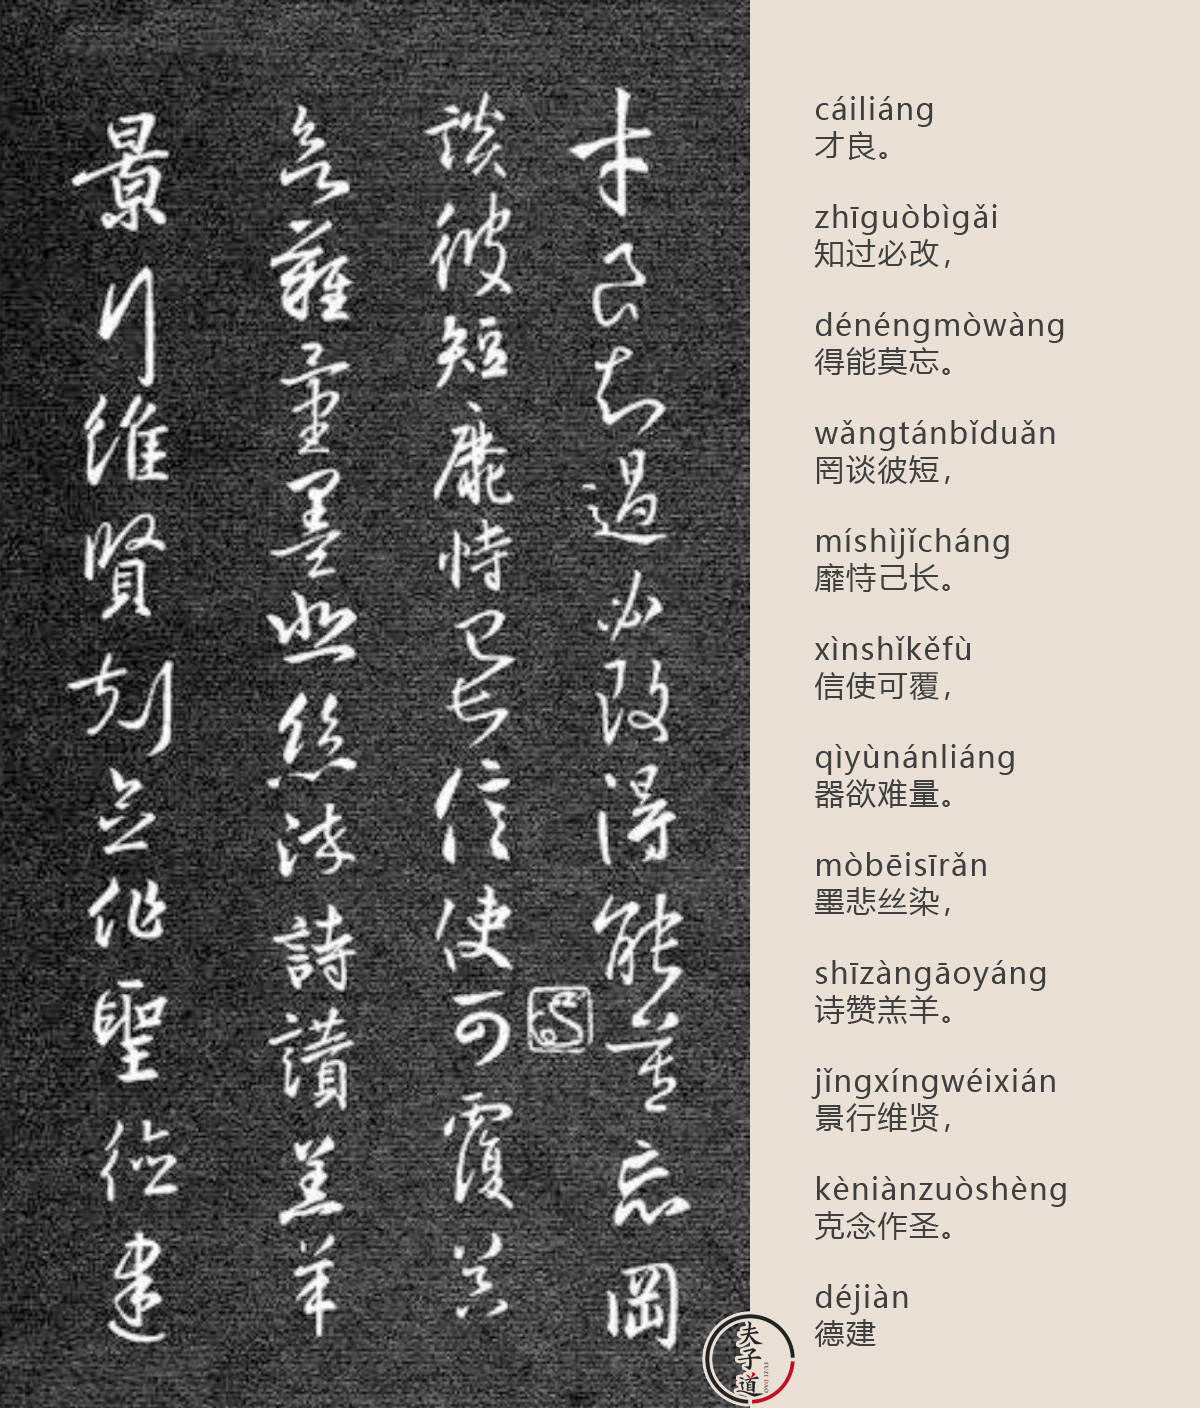 才良知過必改得能莫忘罔
談彼短靡恃己長信使可覆器
欲難量墨悲絲染詩讚羔羊
景行維賢剋念作聖德建
cáiliáng
才良。
zhīguòbìgǎi
知过必改，
dénéngmòwàng
得能莫忘。
wǎngtánbǐduǎn
罔谈彼短，
míshìjǐcháng
靡恃己长。
xìnshǐkěfù
信使可覆，
qìyùnánliáng
器欲难量。
mòbēisīrǎn
墨悲丝染，
shīzàngāoyáng
诗赞羔羊。
jǐngxíngwéixián
景行维贤，
kèniànzuòshèng
克念作圣。
déjiàn
德建
夫子道
FUZI DAO